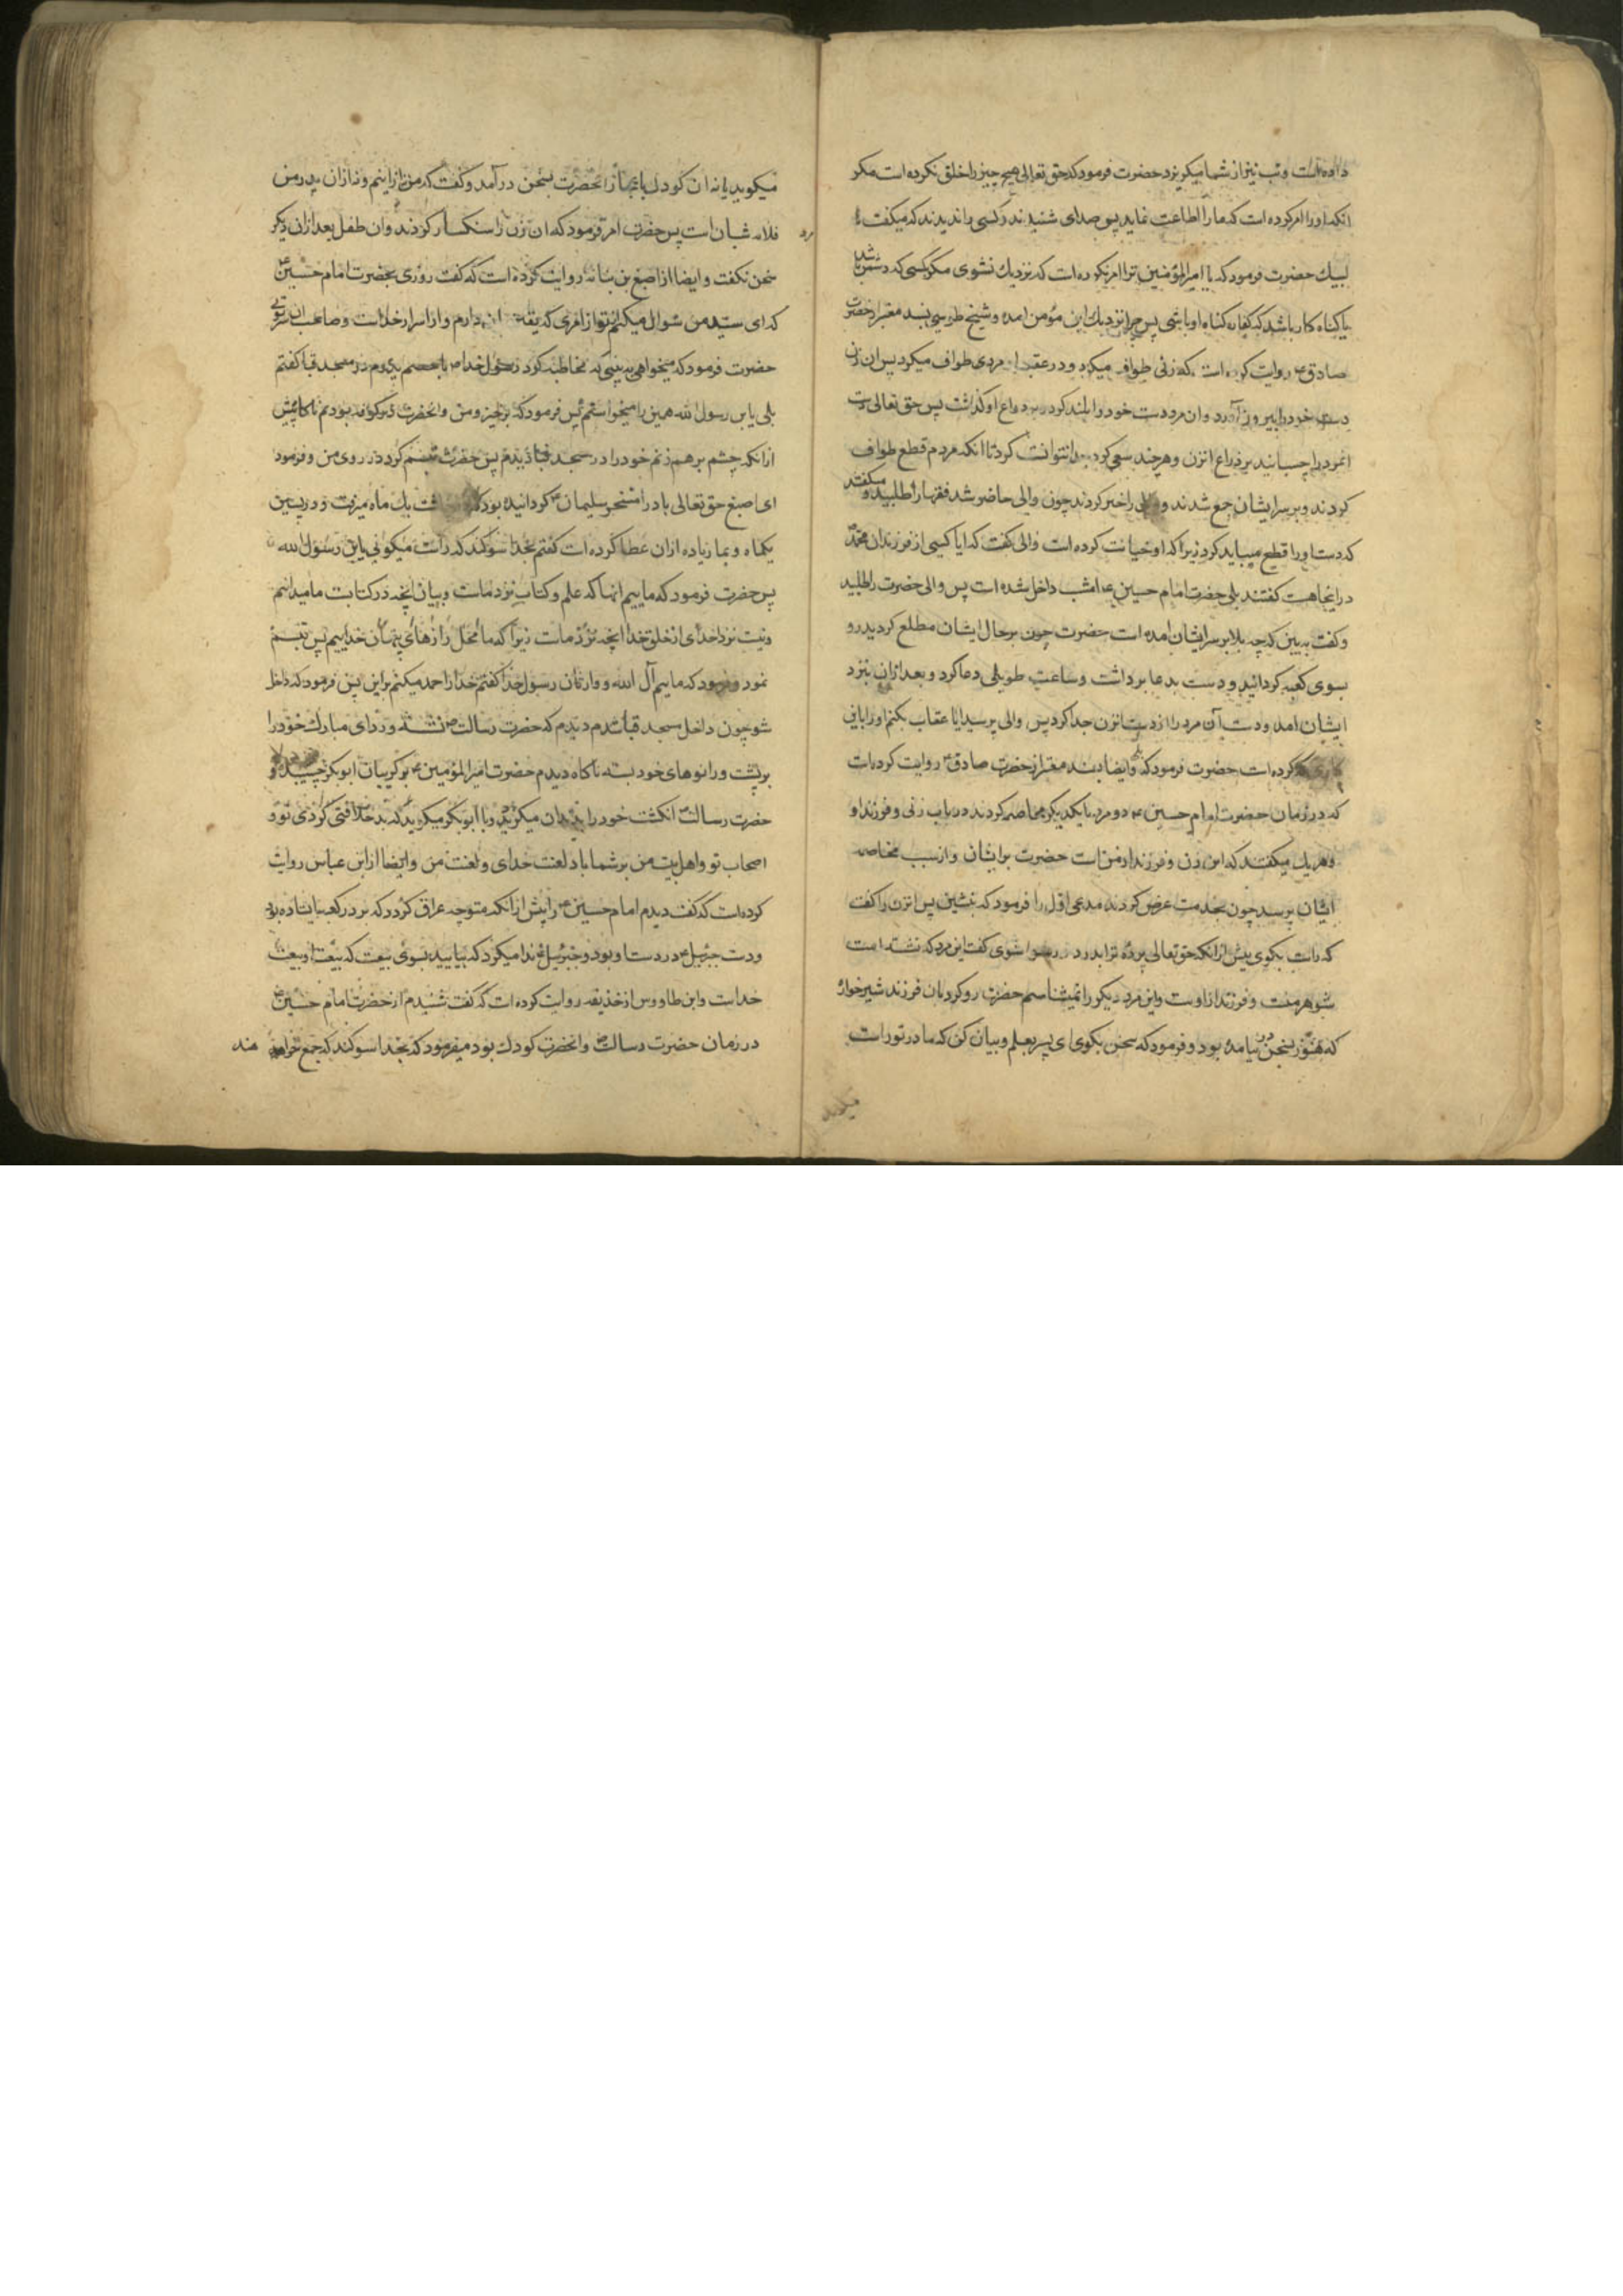 داده است و تب نیز از شما میگریزد حضرت فرمود که حق تعالی هیچ چیز را خلق نکرده است مکر
انکه او را امر کرده است که ما را اطاعت نماید پس صدای شنیدند و کسی را ندیدند که میکفت
لبیک حضرت فرمود که یا امیرالمؤمنین ترا امر نکرده است که نزدیک نشوی مکر کسی که دشمن ما باشد
یا کناه کار باشد که کفاره کناه او باشی پس چرا نزدیک این مؤمن امده و شیخ طوسی بسند معتبر از حضرت
صادق ع روایت کرده است که زنی طواف میکرد و در عقب او مردی طواف میکرد پس ان زن
دست خود را بیرون آورد و ان مرد دست خود را بلند کرد و بر ذراع او کذاشت پس حق تعالی دست
انمرد را چسبانید بر ذراع انزن و هر چند سعی کرد جدا نتوانست کرد تا انکه مردم قطع طواف
کردند و بر سر ایشان جمع شدند و والی را خبر کردند چون والی حاضر شد فقها را طلبید و میکفتند
که دست او را قطع میباید کرد زیرا که او خیانت کرده است والی کفت که ایا کسی از فرزندان محمد ص
در اینجا هست کفتند بلی حضرت امام حسین ع امشب داخل شده است پس والی حضرت را طلبید
و کفت به بین که چه بلا بر سر ایشان امده است حضرت چون بر حال ایشان مطلع کردید رو
بسوی کعبه کردانید و دست بدعا برداشت و ساعت طویلی دعا کرد و بعد از ان بنزد
ایشان امد و دست آن مرد را از دست انزن جدا کرد پس والی پرسید ایا عقاب بکنم او را باین
کاری که کرده است حضرت فرمود که نه و ایضا بسند معتبر از حضرت صادق ع روایت کرده است
که در زمان حضرت امام حسین ع دو مرد با یکدیکر مخاصمه کردند در باب زنی و فرزند او
و هر یک میکفتند که این زن و فرزند از من است حضرت بر ایشان و از سبب مخاصمه
ایشان پرسید چون بخدمت عرض کردند مدعی اول را فرمود که بنشین پس انزن را کفت
که راست بکوی پیش از انکه حق تعالی پرده ترا بدرد و رسوا شوی کفت این مرد که نشسته است
شوهر منست و فرزند از اوست و این مرد دیکر را نمیشناسم حضرت رو کرد بان فرزند شیر خواره
که هنوز بسخن در نیامده بود و فرمود که سخن بکوی ای پسر بعلم و بیان کن که مادر تو راست
میکوید
میکوید یا نه ان کودک باعجاز انحضرت بسخن در آمد و کفت که من نه از اینم و نه از ان پدر من
فلانه شبان است پس حضرت امر فرمود که ان زن را سنکسار کردند و ان طفل بعد از ان دیکر
سخن نکفت و ایضا از اصبغ بن نباته روایت کرده است که کفت روزی بحضرت امام حسین ع
که ای سید من سؤال میکنم تو از امری که یقین بان دارم و از اسرار خداست و صاحب ان سر توئی
حضرت فرمود که میخواهی به بینی که مخاطبه کرد رسول خدا ص با خصم پدرم در مسجد قبا کفتم
بلی یا بن رسول الله همین را میخواستم پس فرمود که برخیز و من و انحضرت در کوفه بودیم ناکاه پیش
از انکه چشم بر هم زنم خود را در مسجد قبا دیدم پس حضرت تبسم کرد در روی من و فرمود
ای اصبغ حق تعالی باد را مسخر سلیمان ع کردانیده بود که چاشت یک ماه میرفت و در پسین
یکماه و بما زیاده از ان عطا کرده است کفتم بخدا سوکند که راست میکوئی یا بن رسول الله
پس حضرت فرمود که ماییم انها که علم و کتاب نزد ماست و بیان انچه در کتابت ما میدانیم
و نیست نزد احدی از خلق خدا انچه نزد ماست زیرا که ما محل رازهای پنهان خداییم پس تبسم
نمود و فرمود که ماییم آل الله و وارثان رسول خدا کفتم خدا را حمد میکنم بر این پس فرمود که داخل
شو چون داخل مسجد قبا شدم دیدم که حضرت رسالت ص نشسته و ردای مبارک خود را
بر پشت و زانوهای خود بسته ناکاه دیدم حضرت امیرالمؤمنین ع بر کریبان ابوبکر چسبیده و
حضرت رسالت انکشت خود را بدندان میکزید و با ابوبکر میکوید که بد خلافتی کردی تو و
اصحاب تو و اهل بیت من بر شما باد لعنت خدای و لعنت من و ایضا از ابن عباس روایت
کرده است که کفت دیدم امام حسین ع را پیش از انکه متوجه عراق کردد که بر در کعبه ایستاده بود
و دست جبرئیل ع در دست او بود و جبرئیل ع ندا میکرد که بیایید بسوی بیعت که بیعت او بیعت
خداست و ابن طاووس از حذیفه روایت کرده است که کفت شنیدم از حضرت امام حسین ع
در زمان حضرت رسالت ص و انحضرت کودک بود میفرمود که بخدا سوکند که جمع خواهند